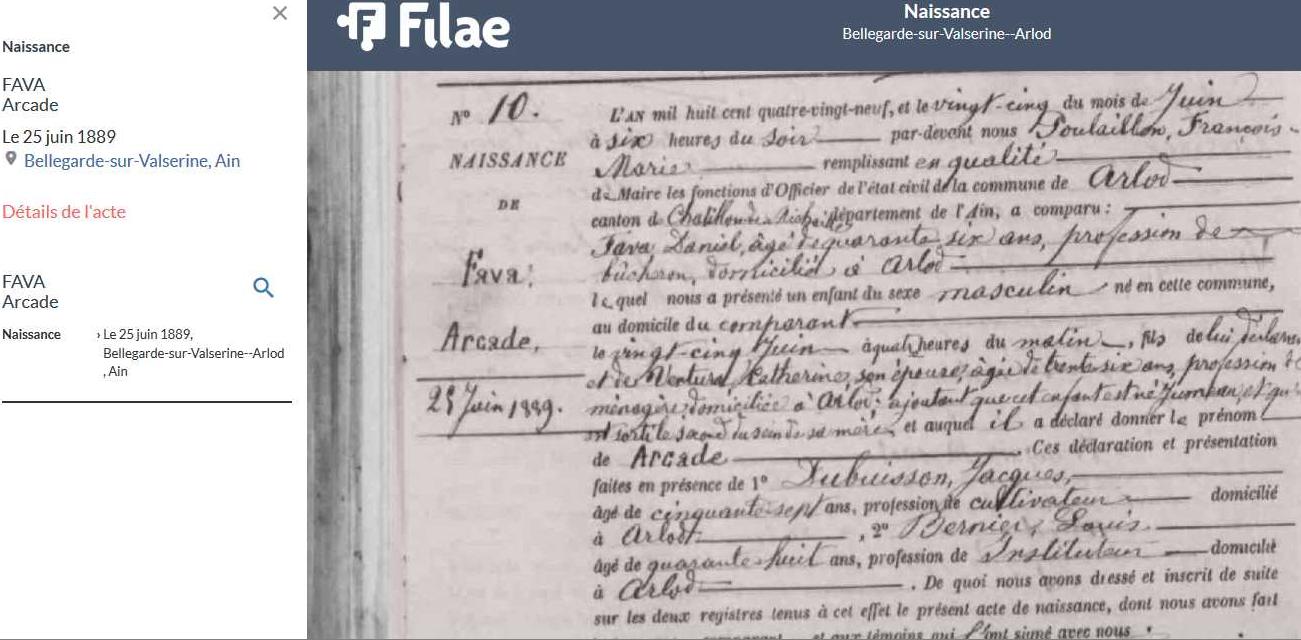 ×
Naissance
FAVA
Arcade
Le 25 juin 1889
Bellegarde-sur-Valserine, Ain
Détails de l'acte
FAVA
Arcade
Naissance › Le 25 juin 1889,
Bellegarde-sur-Valserine--Arlod
, Ain
Filae
Naissance
Bellegarde-sur-Valserine--Arlod
N° 10.
NAISSANCE
DE
Fava,
Arcade,
25 Juin 1889.
L'AN mil huit cent quatre-vingt-neuf, et le vingt-cinq du mois de Juin
à six heures du soir par-devant nous Poulaillon, François-
Marie remplissant en qualité
de Maire les fonctions d'Officier de l'état civil de la commune de Arlod
canton de Chatillon-de-Michaille, département de l'Ain, a comparu :
Fava Daniel, âgé de quarante six ans, profession de
bûcheron, domicilié à Arlod
lequel nous a présenté un enfant du sexe masculin né en cette commune,
au domicile du comparant
le vingt-cinq Juin à quat heures du matin, fils de lui déclara
et de Ventura, Catherine, son épouse, âgée de trente six ans, profession de
ménagère, domiciliée à Arlod; ajoutant que cet enfant est né Jumeau, et qu'
est sorti le second du sein de sa mère, et auquel il a déclaré donner le prénom
de Arcade . Ces déclaration et présentation
faites en présence de 1° Dubuisson, Jacques,
âgé de cinquante-sept ans, profession de cultivateur domicilié
à Arlod , 2° Bernier, Louis
âgé de quarante-huit ans, profession de Instituteur domicilié
à Arlod . De quoi nous avons dressé et inscrit de suite
sur les deux registres tenus à cet effet le présent acte de naissance, dont nous avons fait
et aux témoins qui l'ont signé avec nous